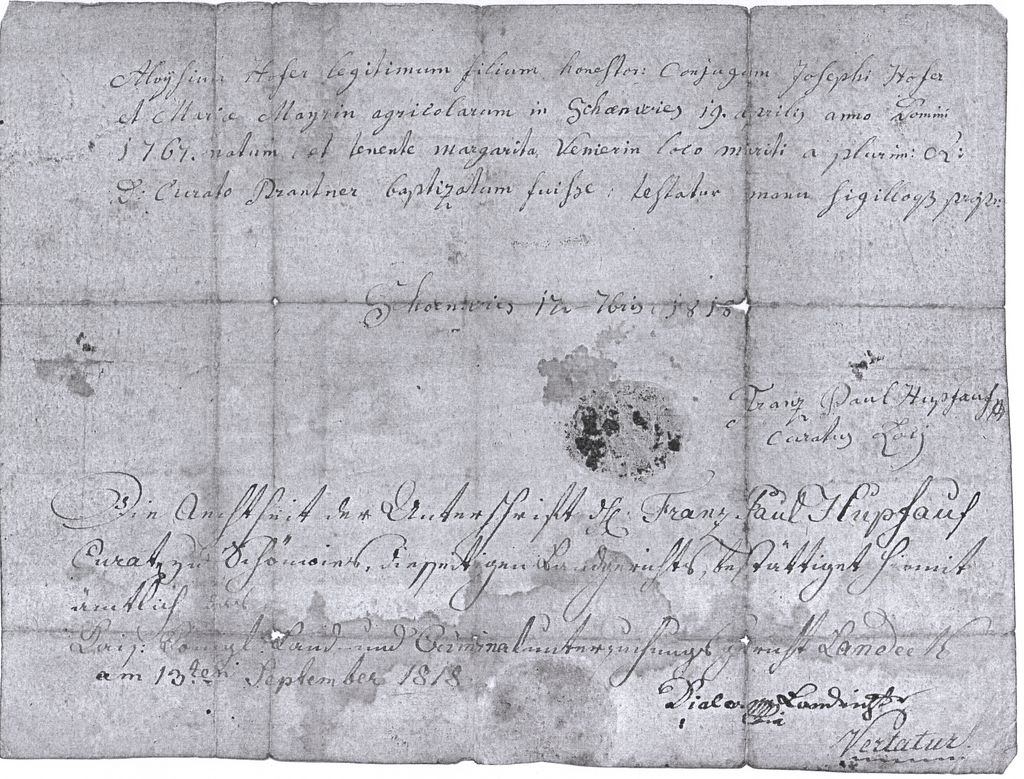 Aloysium Hofer legitimum filium honestor: Conjugum Josephi Hofer
et Mariæ Mayrin agricolarum in Schœnwies 19. aprilis anno Domini
1767. natum, et tenente margarita Venierin loco mariti a plurim: R:
D: Curato Prantner baptizatum fuisse; testatur manu sigilloq3 propr:
Schœnwies 12 7bris 1818
Franz Paul Hupfauf
Curatus Loci
Die Aechtheit der Unterschrift des Franz Paul Hupfauf
Curat zu Schönwies, diesseitigen Landgerichts, bestättiget hiemit
ämtlich das
Kais: Königl: Land- und Criminaluntersuchungs gericht Landeck
am 13ten September 1818
Landrichter
Vertatur